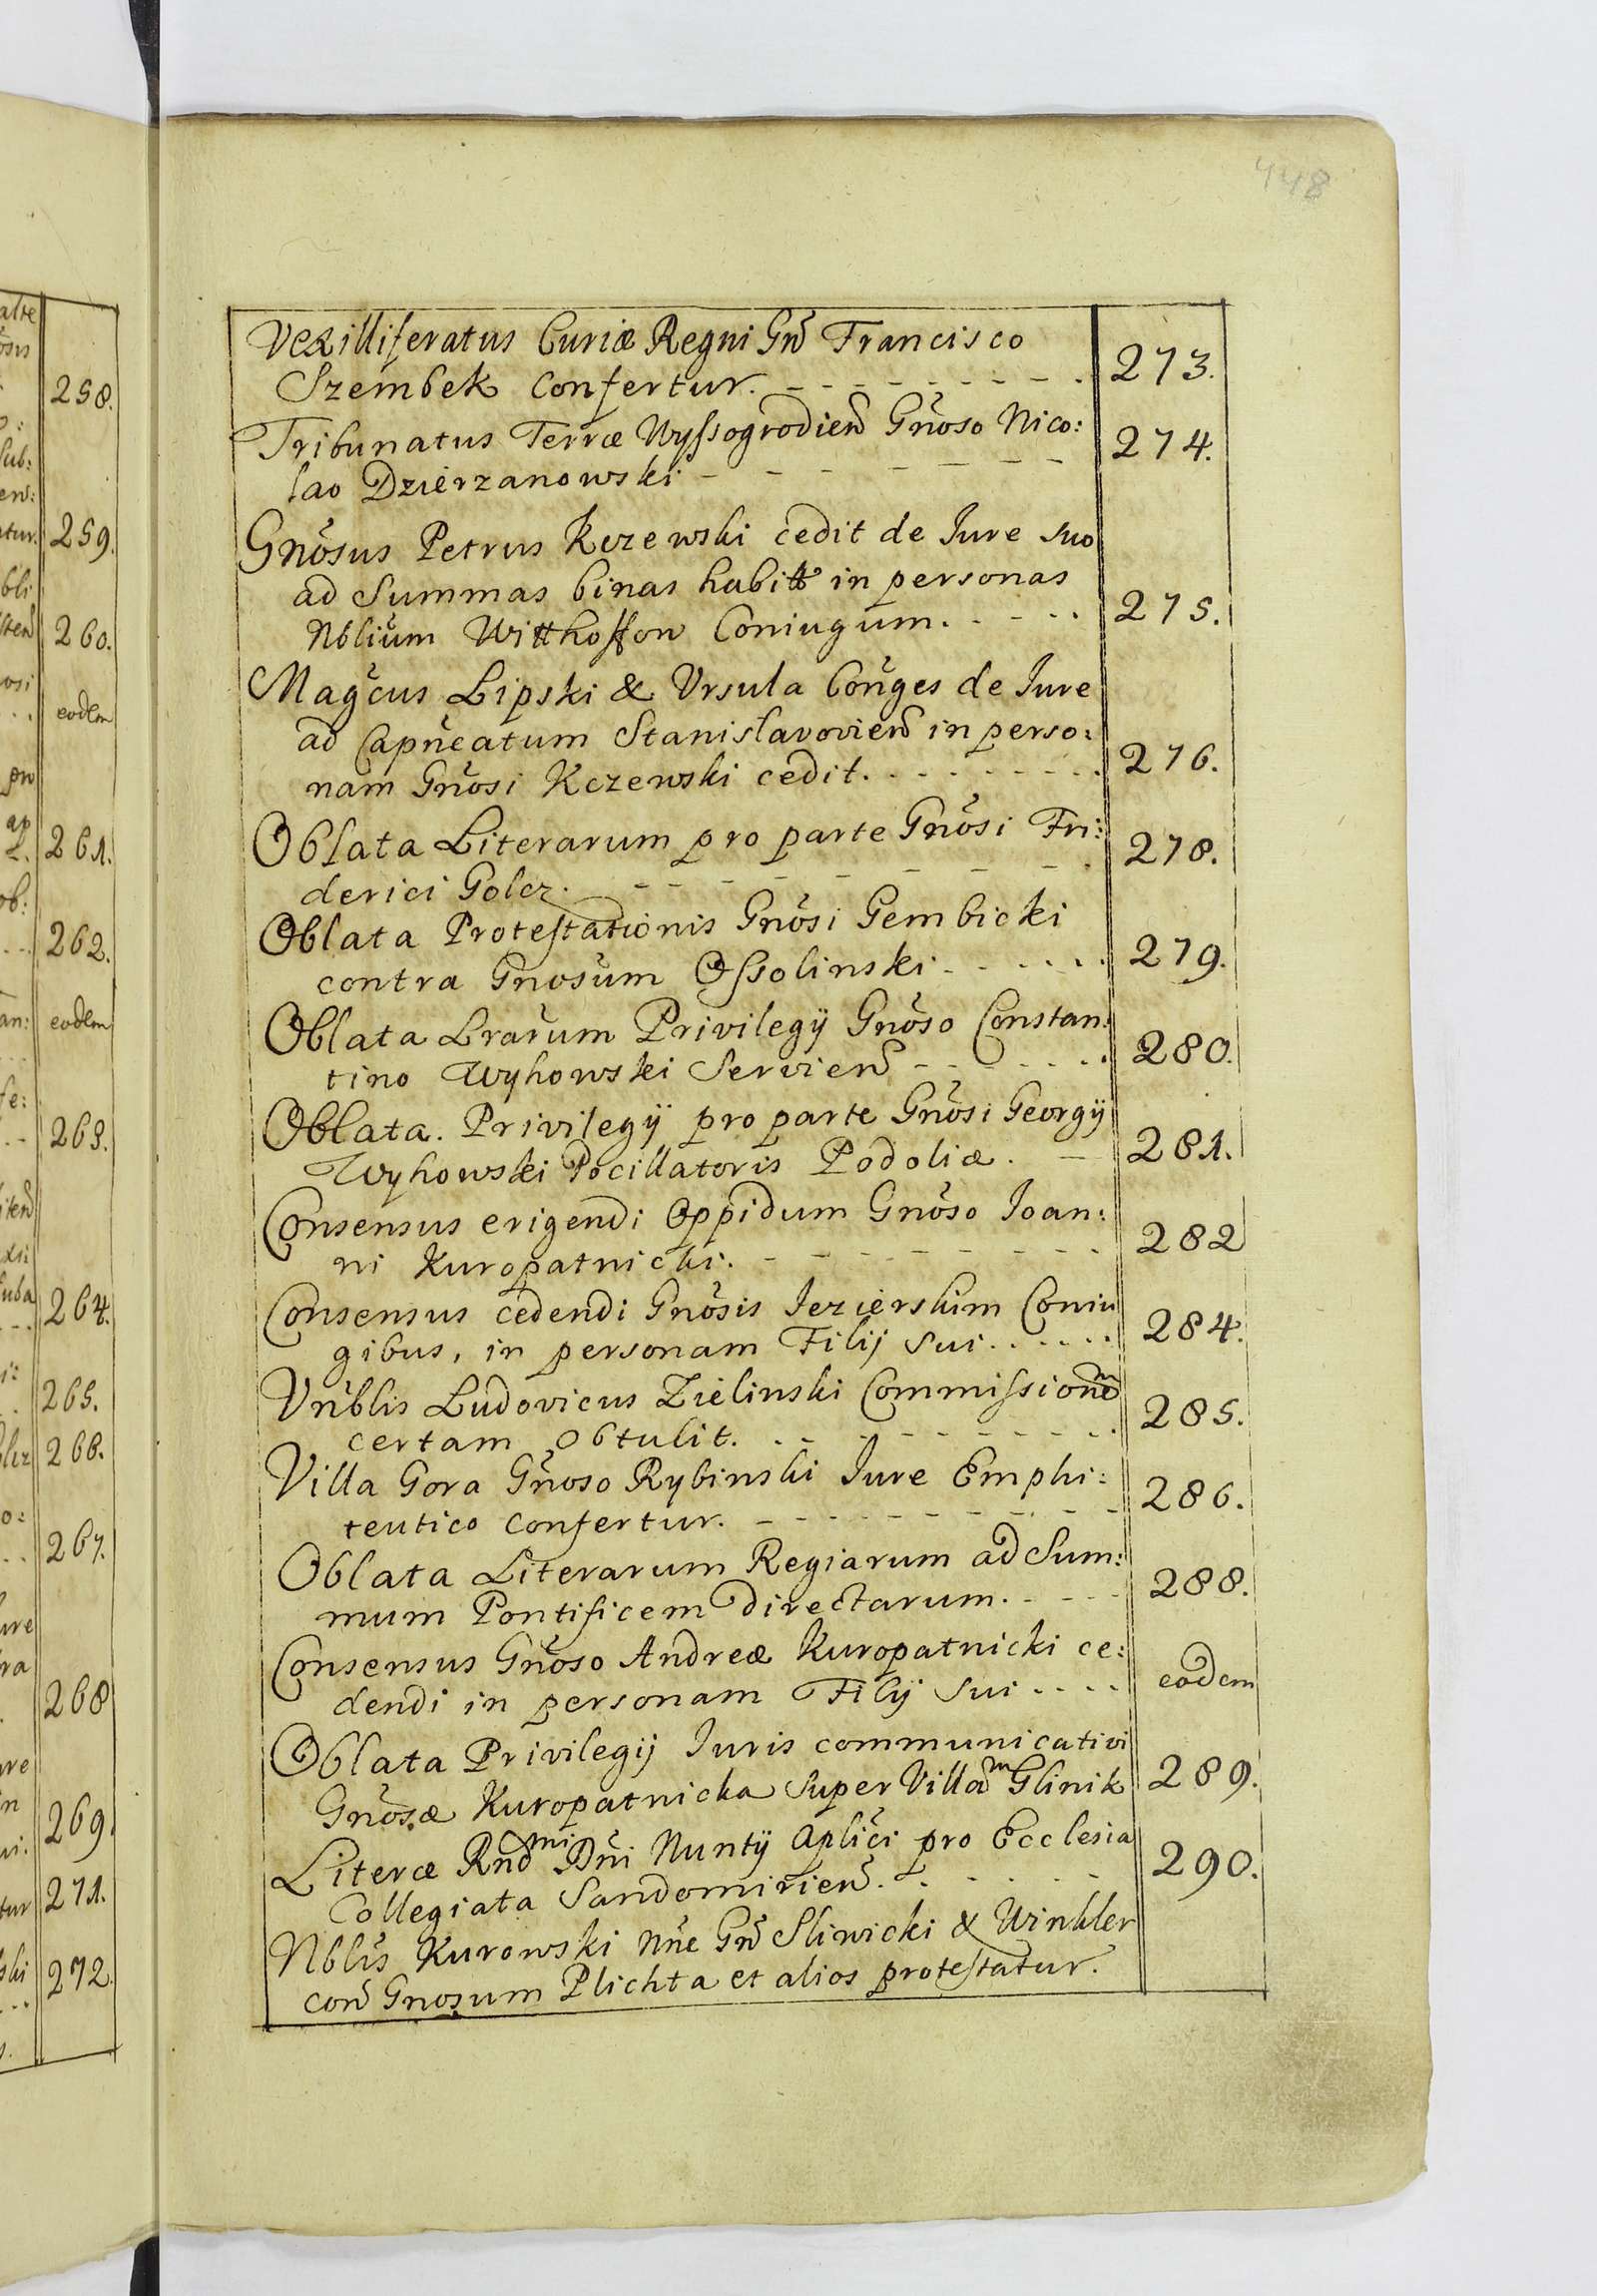 448
Vexilliferatus Curiæ Regni Gn̄ Francisco
Szembek confertur. - - - - - - - - 273.
Tribunatus Terræ Wyssogrodien̄ Gn̄oso Nico:
lao Dzierzanowski - - - - - - - 274.
Gn̄osus Petrus Kczewski cedit de Jure suo
ad Summas binas habitt in personas
Nblium Witthoffow Coniugum. - - - - 275.
Magc̄us Lipski & Vrsula Con̄ges de Jure
ad Capn̄eatum Stanislavovien̄ in perso:
nam Gn̄osi Kczewski cedit. - - - - - - - 276.
Oblata Literarum pro parte Gn̄osi Fri:
derici Golcz. - - - - - - - 278.
Oblata Protestationis Gn̄osi Gembicki
contra Gnosum Ossolinski - - - - - - 279.
Oblata Lrarum Privilegij Gn̄oso Constan:
tino Wyhowski Servien̄ - - - - - - 280.
Oblata. Privilegij pro parte Gn̄osi Georgij
Wyhowski Pocillatoris Podoliæ. - 281.
Consensus erigendi Oppidum Gn̄oso Ioan:
ni Kuropatnicki. - - - - - - - - - 282
Consensus cedendi Gn̄osis Jezierskim Coniu
gibus, in personam Filij sui. . . . . . 284.
Vn̄blis Ludovicus Zielinski Commissionem
certam obtulit. - - - - - - - - - 285.
Villa Gora Gn̄oso Rybinski Jure Emphi:
teutico confertur. - - - - - - - - - 286.
Oblata Literarum Regiarum ad Sum:
mum Pontificem directarum. - - - - 288.
Consensus Gn̄oso Andreæ Kuropatnicki ce:
dendi in personam Filij sui - - - - eodem
Oblata Privilegij Juris communicativi
Gn̄osæ Kuropatnicka super Villam Glinik 289.
Literæ Rndmi Dn̄i Nuntij Aplici pro Ecclesia
Collegiata Sandomirien̄. - - - - - - 290.
Nblis Kurowski nn̄e Gn̄ Sliwicki & Winkler
con̄ Gnosum Plichta et alios protestatur.
258.
259.
260.
eodem
261.
262.
eodem
263.
264.
265.
266.
267.
268
269.
271.
272.